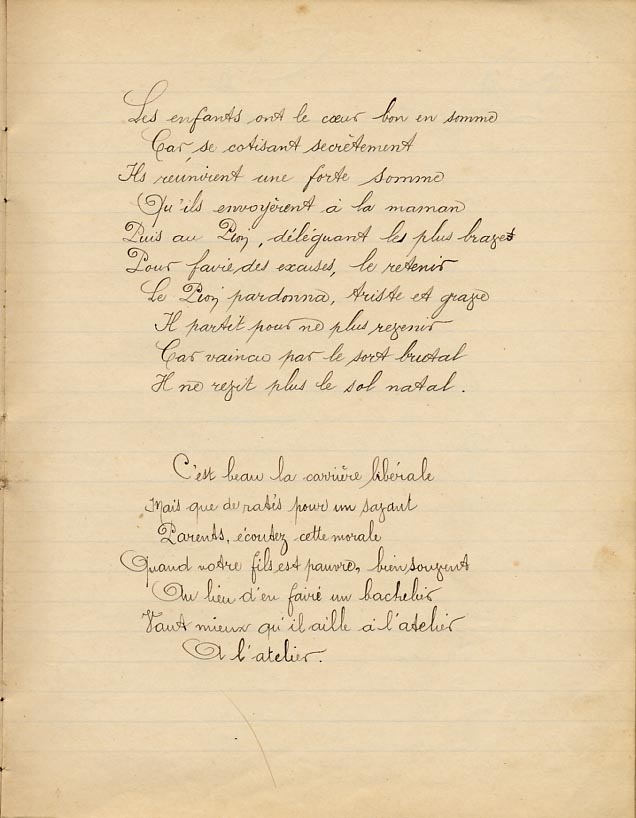 Les enfants ont le cœur bon en somme
Car se cotisant secrètement
Ils réunirent une forte somme
Qu'ils envoyèrent à la maman
Puis au Pion, déléguant les plus braves
Pour faire des excuses, le retenir
Le Pion pardonna, triste et grave
Il partit pour ne plus revenir
Car vaincu par le sort brutal
Il ne revit plus le sol natal.
C'est beau la carrière libérale
Mais que de ratés pour un savant
Parents, écoutez cette morale
Quand notre fils est pauvre, bien souvent
Au lieu d'en faire un bachelier
Vaut mieux qu'il aille à l'atelier
A l'atelier.